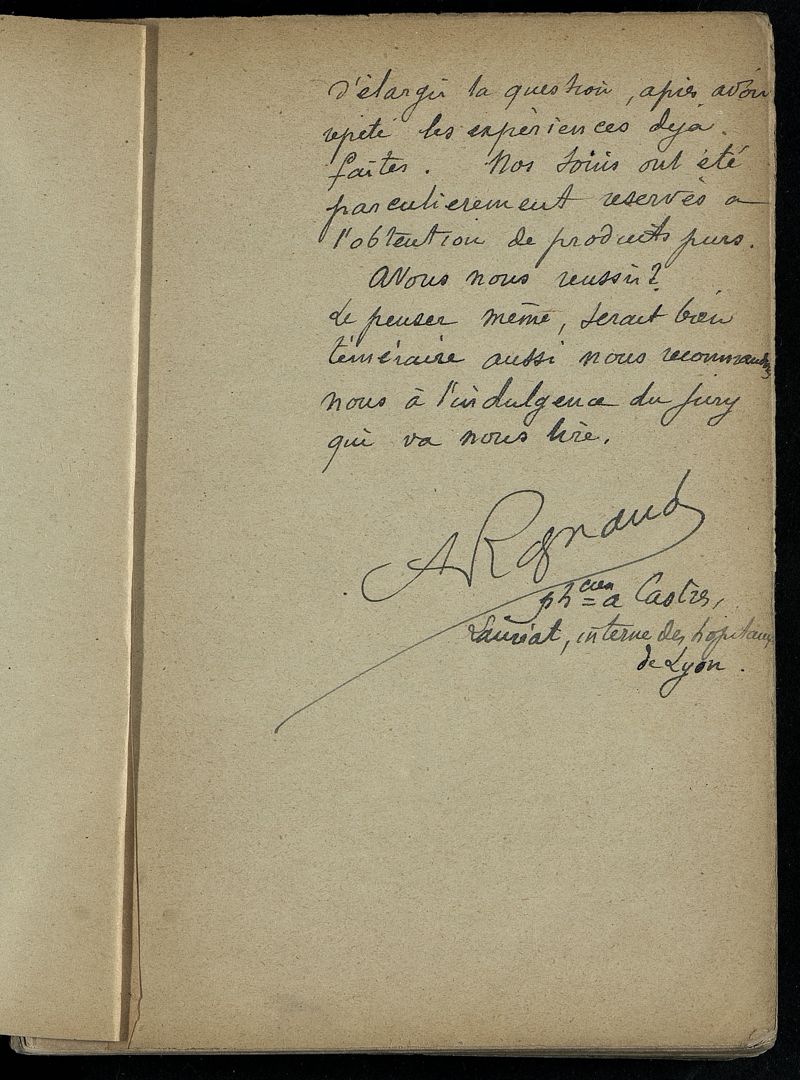 d'élargir la question, après avoir
repeté les expèriences dejà
faites. Nos soins ont été
parculierement reservès a
l'obtention de produits purs.
Avons nous reussir?
Le penser même, serait bien
téméraire aussi nous recommandons
nous à l'indulgence du jury
qui va nous lire.
A Rognaud
ph cien = a Castres,
Lauréat, interne des hopitaux
de Lyon.